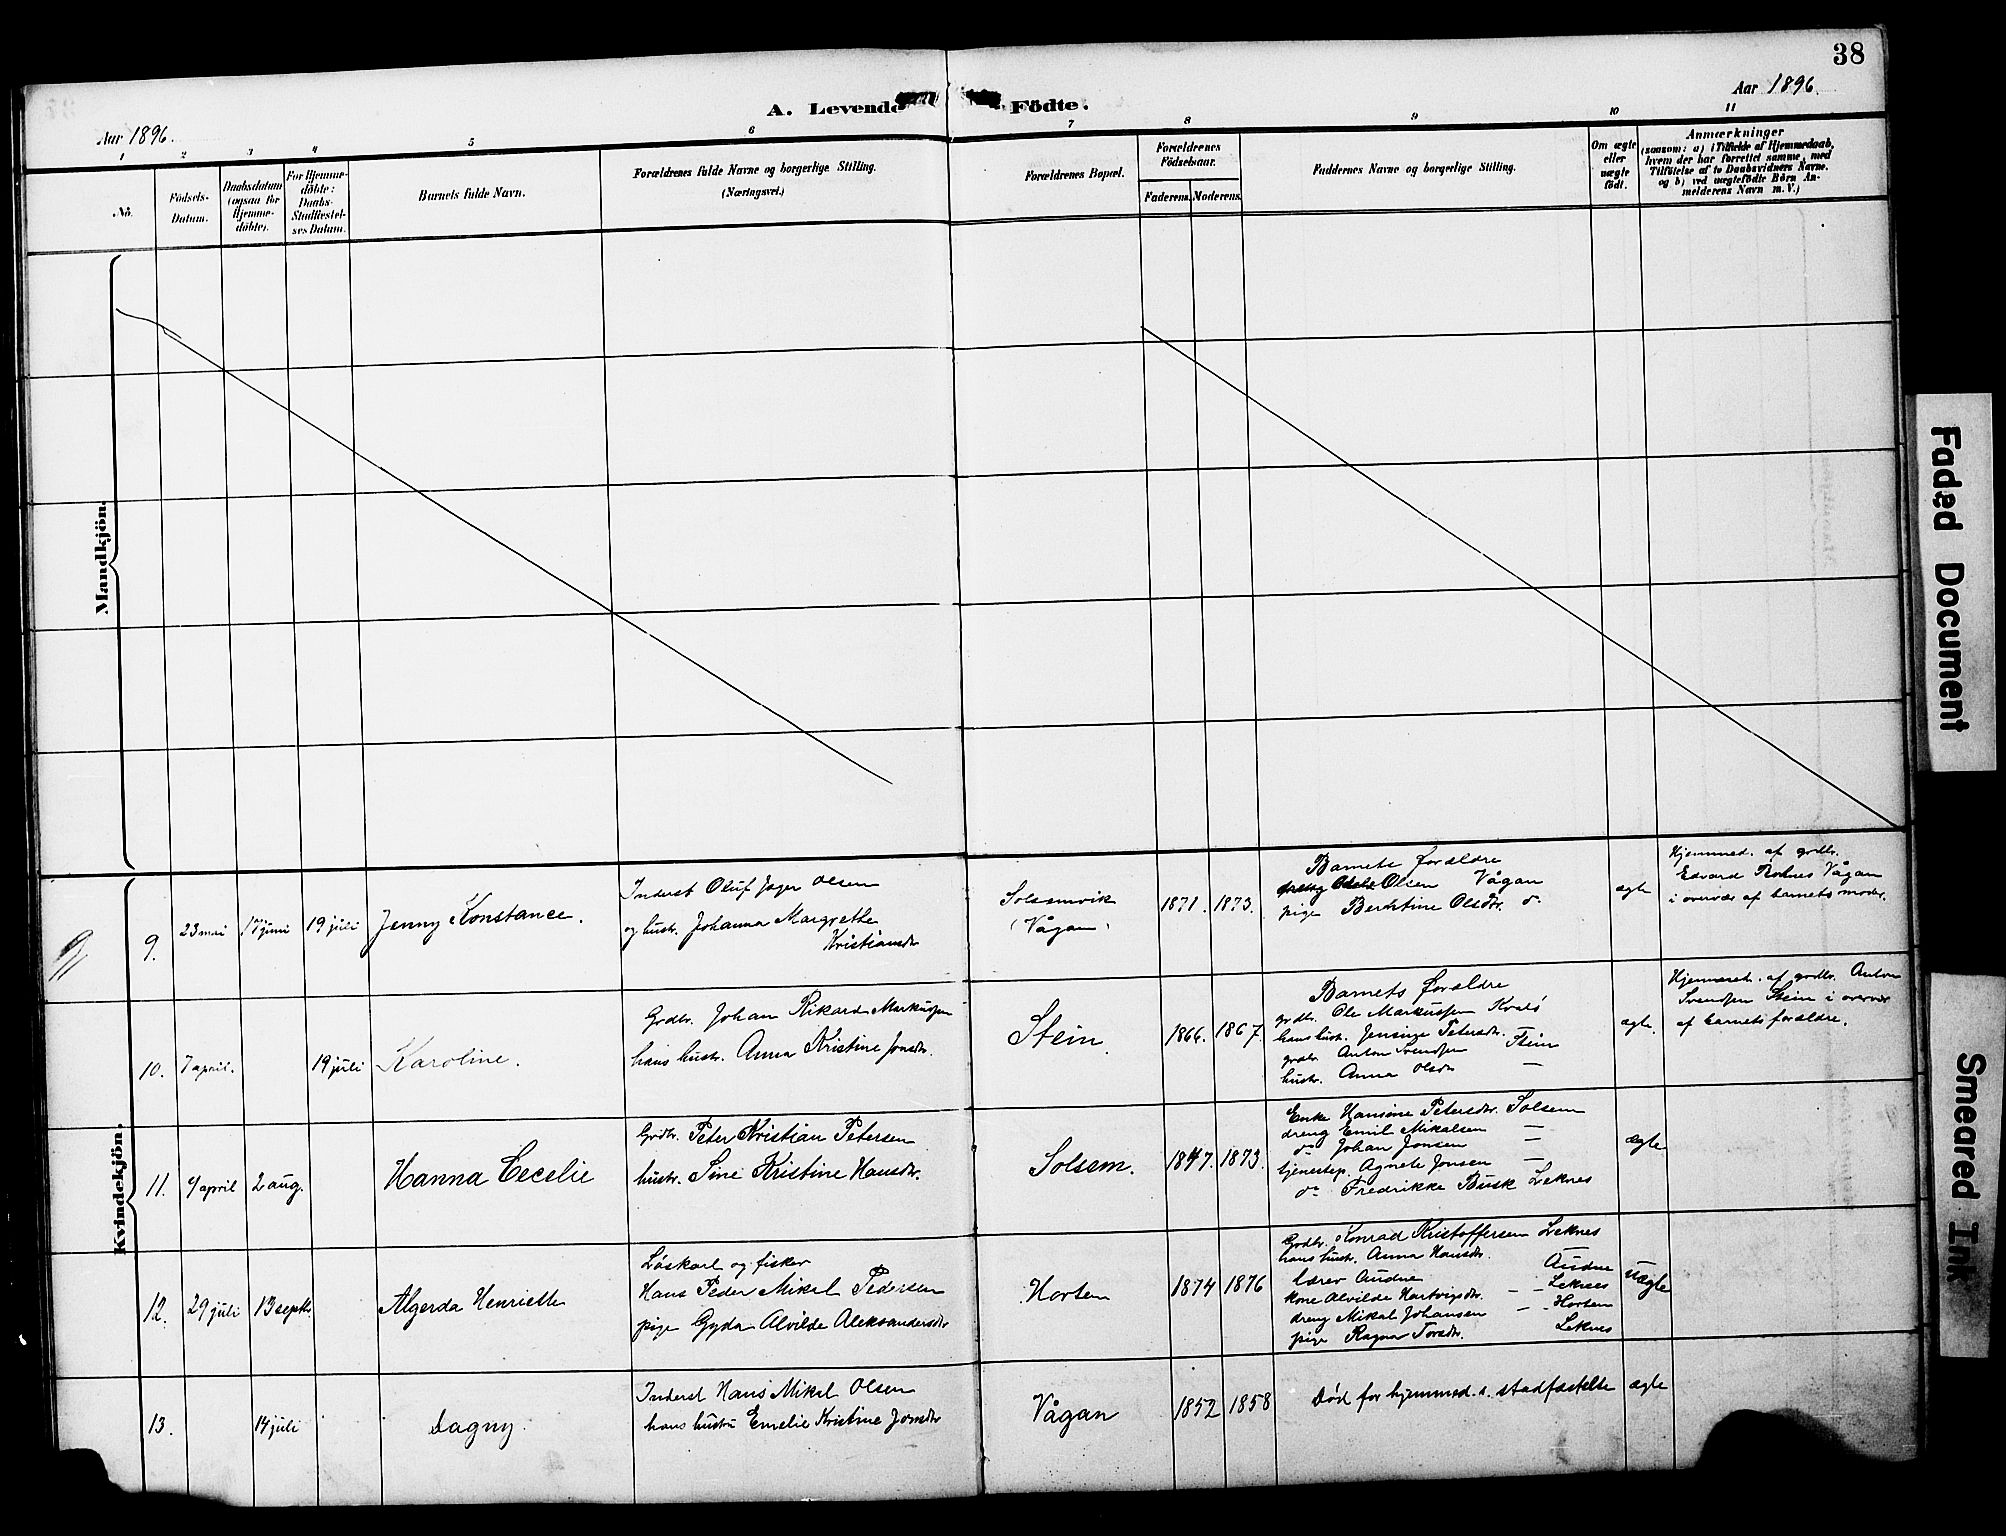 38
A. Levende Födte.
Aar 1896.
Aar 1896.
1 2 3 4 5 6 7 8 9 10 11
No.
Födsels-
Datum.
Daabsdatum
(ogsaa for
Hjemme-
døbte).
For Hjemme-
døbte:
Daabs-
Stadfæstel-
ses Datum.
Barnets fulde Navn.
Forældrenes fulde Navne og borgerlige Stilling.
(Næringsvei.)
Forældrenes Bopæl.
Forældrenes
Födselsaar.
Faderens. Moderens.
Faddernes Navne og borgerlige Stilling.
Om ægte
eller
uægte
født.
Anmærkninger
(saasom: a) i Tilfælde af Hjemmedaab,
hvem der har forrettet samme, med
Tilføielse af to Daabsvidners Navne.
og b) ved uægtefødte Börn An-
melderens Navn m. V.)
Mandkjön.
Kvindekjön.
9. 23 mai 17 juni 19 juli Jenny Konstance.
Inderst Oluf Jager Olsen
og hustr. Johanna Margrethe
Kristiansdr
Solsemvik
(Vågan)
1871. 1873.
Barnets forældre
Olsen Vågan
pige Berntine Olsdr. do
ægte
Hjemmed. af grdbr.
Edvard Vågan
i overvær af barnets moder.
10. 7 april. 19 juli Karoline.
Grdbr. Johan Rikard Markussen
hans hustr. Anna Kristine Jonsdr.
Stein.
1866. 1867.
Barnets forældre
grdbr. Ole Markussen Kvalö
hans hust. Jensine Petersdr.
grdbr. Anton Svendsen Stein
hustr. Anna Olsdr —
ægte.
Hjemmed. af grdbr. Anton
Svendsen Stein i overvær
af barnets forældre.
11. 4 april 2 aug. Hanna Cecelie
Grdbr. Peter Kristian Petersen
hustr. Sine Kristine Hansdr.
Solsem.
1847. 1873.
Enke Hansine Petersdr. Solsem
dreng Emil Mikalsen —
do Johan Jonsen —
tjenestep. Agnete Jonsen —
do Fredrikke Busk Leknes
ægte
12. 29 juli 13 septbr. Algerda Henriette
Löskarl og fisker
Hans Peder Mikal Pedersen
pige Gyda Alvilde Aleksandersdr
Horten
1874 1876
Grdbr. Konrad Kristoffersen Leknes
hans hustr. Anna Hansdr. —
lærer Audne Audne
kone Alvilde Hartvigsdr. — Leknes
dreng Mikal Johansen — Horten
pige Ragna Torsdr. Leknes
uægte
13. 14 juli Dagny.
Inderst Hans Mikal Olsen
hans hustru Emelie Kristine Jonsdr
Vågan
1852 1858
Död för hjemmed. s. stadfæstelse
ægte
Faded Document
Smeared Ink